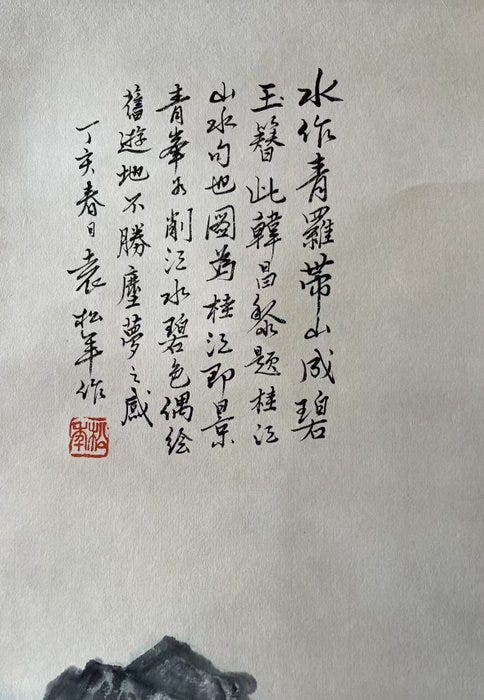 水作青羅帶山成碧
玉簪此韓昌黎題桂江
山水句也圖為桂江即景
青峯如削江水碧色偶繪
舊遊地不勝塵夢之感
丁亥春日袁松年作
松年